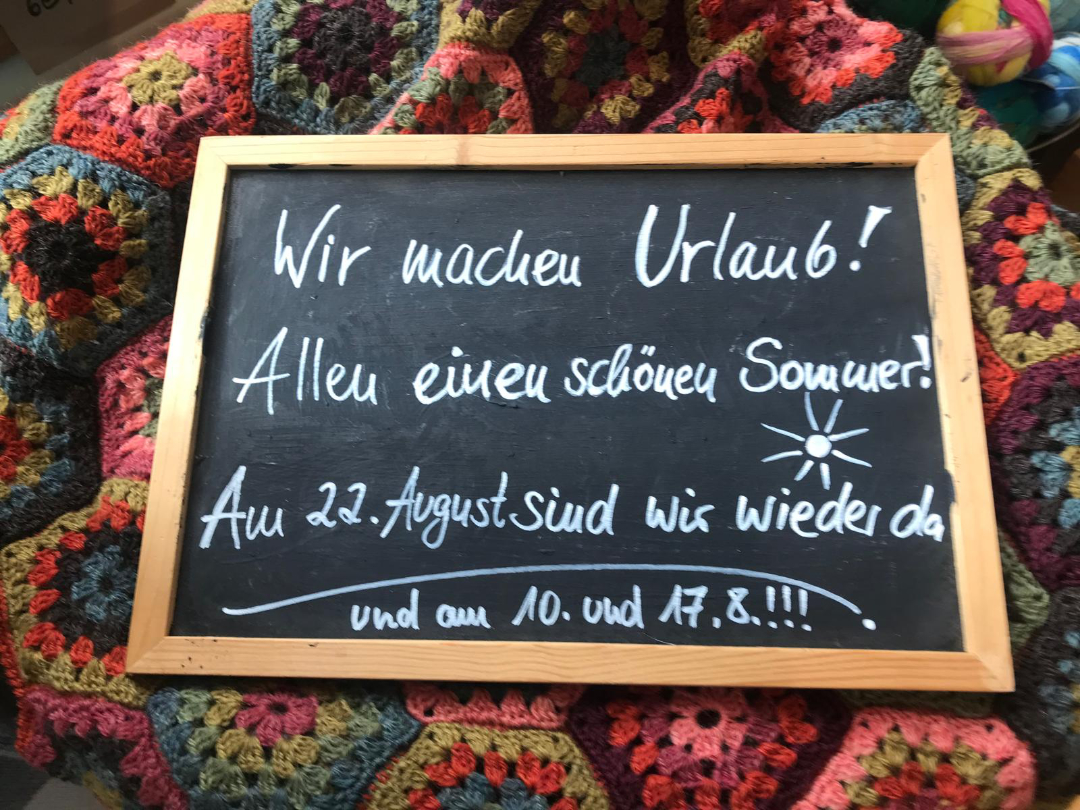 Wir machen Urlaub!
Allen einen schönen Sommer!
Am 22. August sind wir wieder da
und am 10. und 17.8.!!!